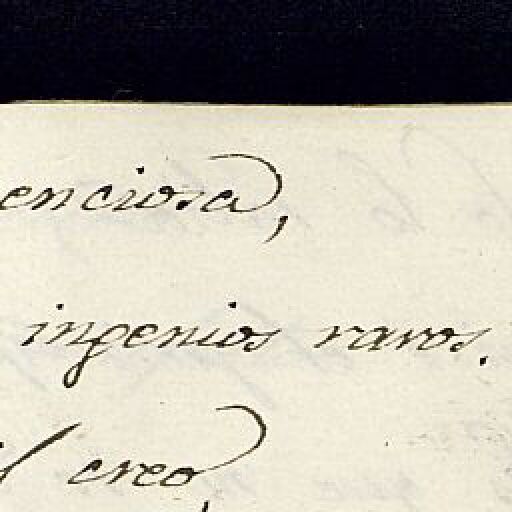 enciosa,
ingenios raros.
creo,